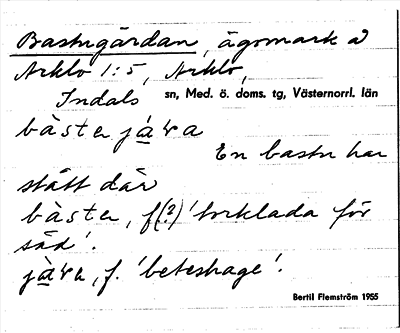 Bastugärdan, ägomark å
Arklo 1:5, Arklo,
Indals sn, Med. ö. doms. tg, Västernorrl. län
bàster jàra
En bastu har
stått där
bàster, f(?) 'torklada för
säd'.
jàra, f. 'beteshage'.
Bertil Flemström 1955